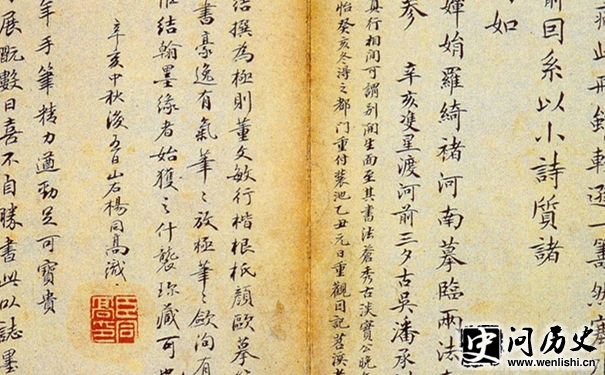 此飛
一籌然塞
前回系以小詩質諸
如
嬋娟羅綺褚河南摹臨兩法
參 辛亥雙星渡河前三夕古吳潘承
真行相間可謂別開生面至其書法蒼秀古淡實公晚
怡癸亥冬得之都門重付裝池乙丑元日重觀因記苕溪
結撰為極則董文敏行楷根柢顏歐摹
書豪逸有氣筆〻放極筆〻斂向有
結翰墨緣者始獲之什襲珍藏可
辛亥中秋後五日山右楊同高識
年手筆精力遒勁足可寶貴
展既數日喜不自勝書此以誌墨
史问历史
www.wenlishi.cn